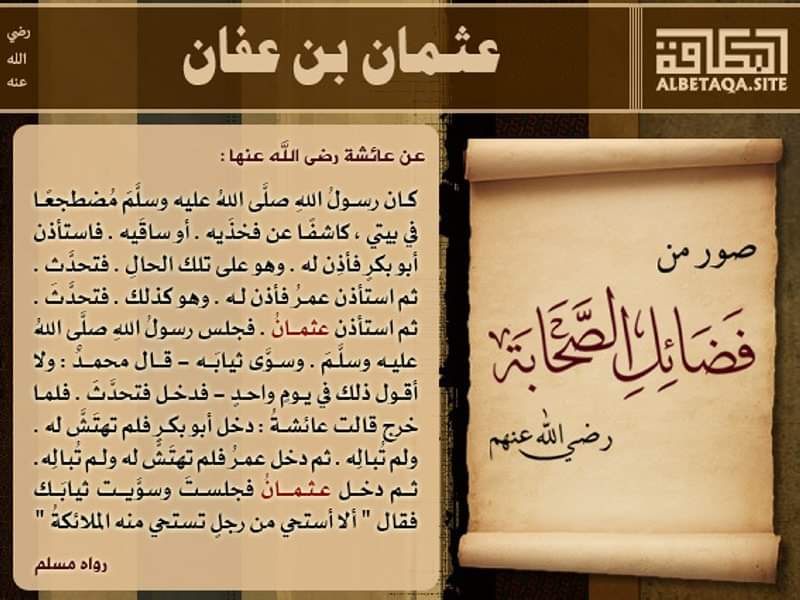 عثمان بن عفان
رضي
الله
عنه
البطاقة
ALBETAQA.SITE
صور من
فَضَائِلِ الصَّحَابَة
رضي الله عنهم
عن عائشة رضى اللَّه عنها :
كان رسولُ اللهِ صلَّى اللهُ عليه وسلَّمَ مُضطجعًا
في بيتي ، كاشفًا عن فخذَيه . أو ساقَيه . فاستأذن
أبو بكرٍ فأذِن له . وهو على تلك الحالِ . فتحدَّث .
ثم استأذن عمرُ فأذن له . وهو كذلك . فتحدَّثَ .
ثم استأذن عثمانُ . فجلس رسولُ اللهِ صلَّى اللهُ
عليه وسلَّمَ . وسوَّى ثيابَه – قال محمدٌ : ولا
أقول ذلك في يومٍ واحدٍ – فدخل فتحدَّثَ . فلما
خرج قالت عائشةُ : دخل أبو بكرٍ فلم تهتَشَّ له .
ولم تُبالِه . ثم دخل عمرُ فلم تهتَشَّ له ولم تُبالِه.
ثم دخل عثمانُ فجلستَ وسوَّيت ثيابَك
فقال " ألا أستحي من رجلٍ تستحي منه الملائكةُ "
رواه مسلم